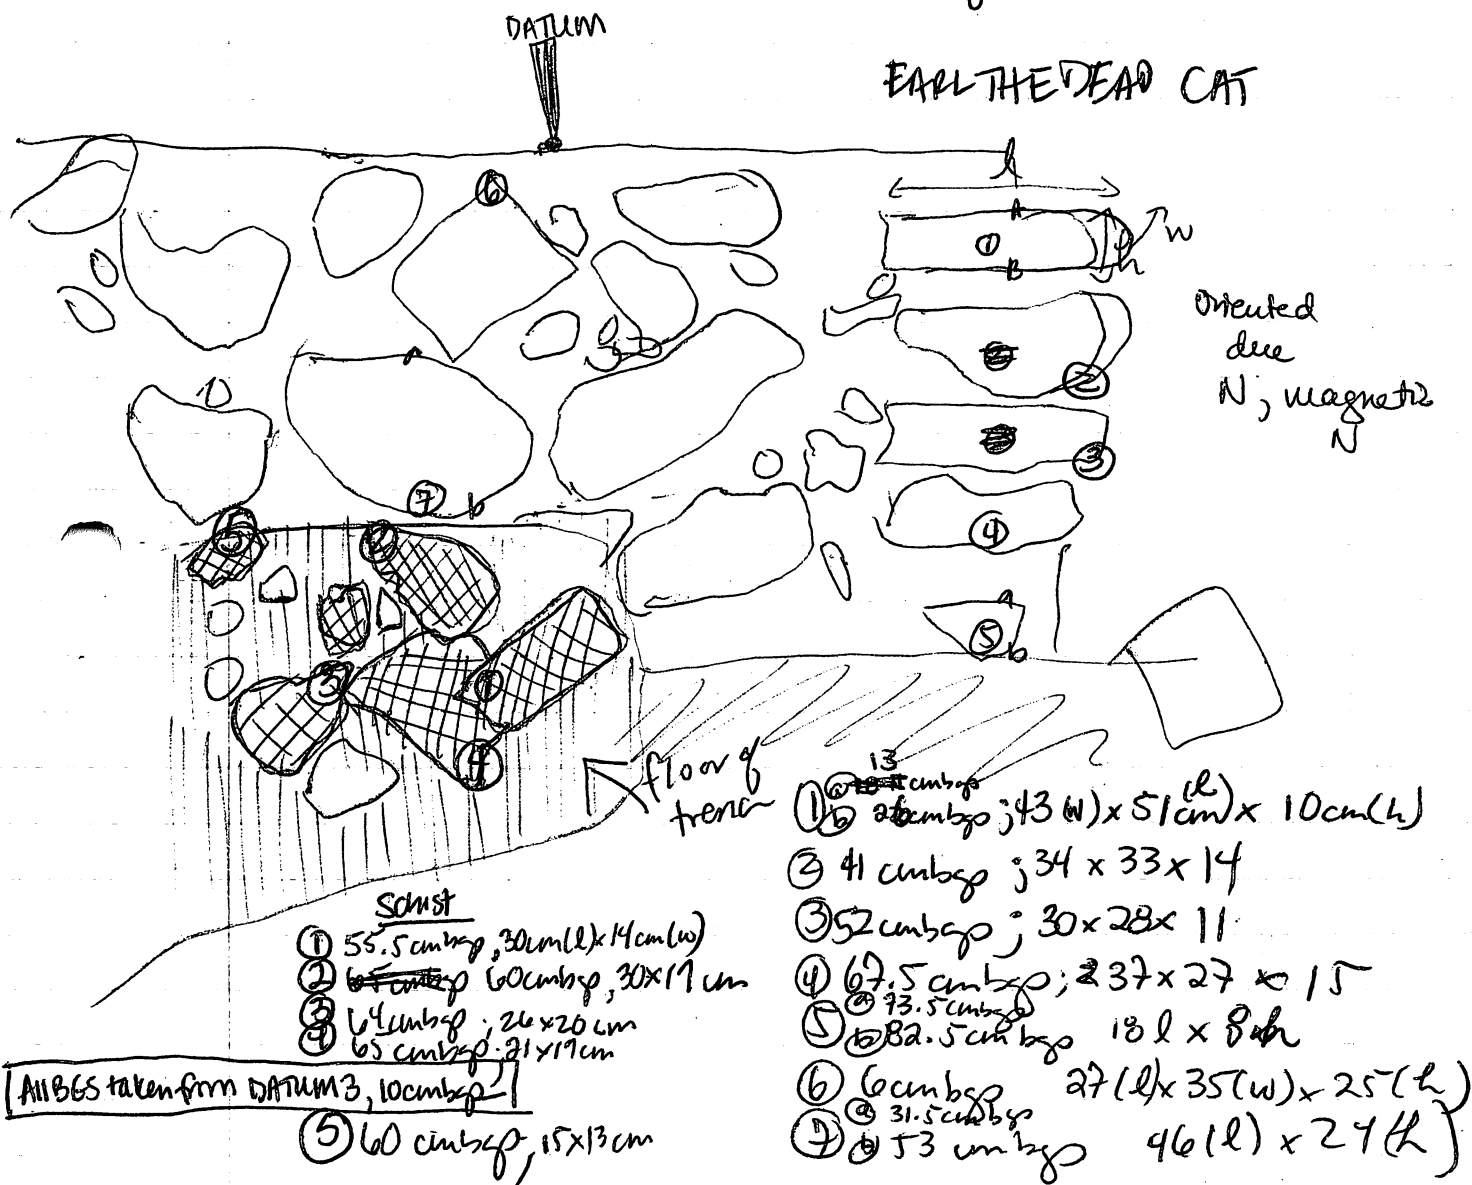 DATUM
EARL THE DEAD CAT
l
A
① w
h
B
Oriented
due
N; magnetic
N
⑥
②
③
④
A
⑤ b
⑦ b
⑤ ②
③ ①
④
floor of
trench
13
① ⓐ cmbgp
ⓑ 26 cmbgp; 43(w) x 51(cm)(l) x 10cm(h)
② 41 cmbgp; 34 x 33 x 14
③ 52 cmbgp; 30 x 28 x 11
④ 67.5 cmbgp; 37 x 27 x 15
ⓐ 73.5 cmbgp
⑤ ⓑ 82.5 cmbgp 18 l x 8 h
⑥ 6 cmbgp 27(l) x 35(w) x 25(h)
ⓐ 31.5 cmbgp
⑦ ⓑ 53 cmbgp 46(l) x 24(h)
Schist
① 55.5 cmbgp, 30cm(l) x 14cm(w)
② 60 cmbgp, 30x19 cm
③ 64 cmbgp; 26x20 cm
④ 65 cmbgp; 21x19 cm
All BGS taken from DATUM 3, 10 cmbgp
⑤ 60 cmbgp, 15x13 cm